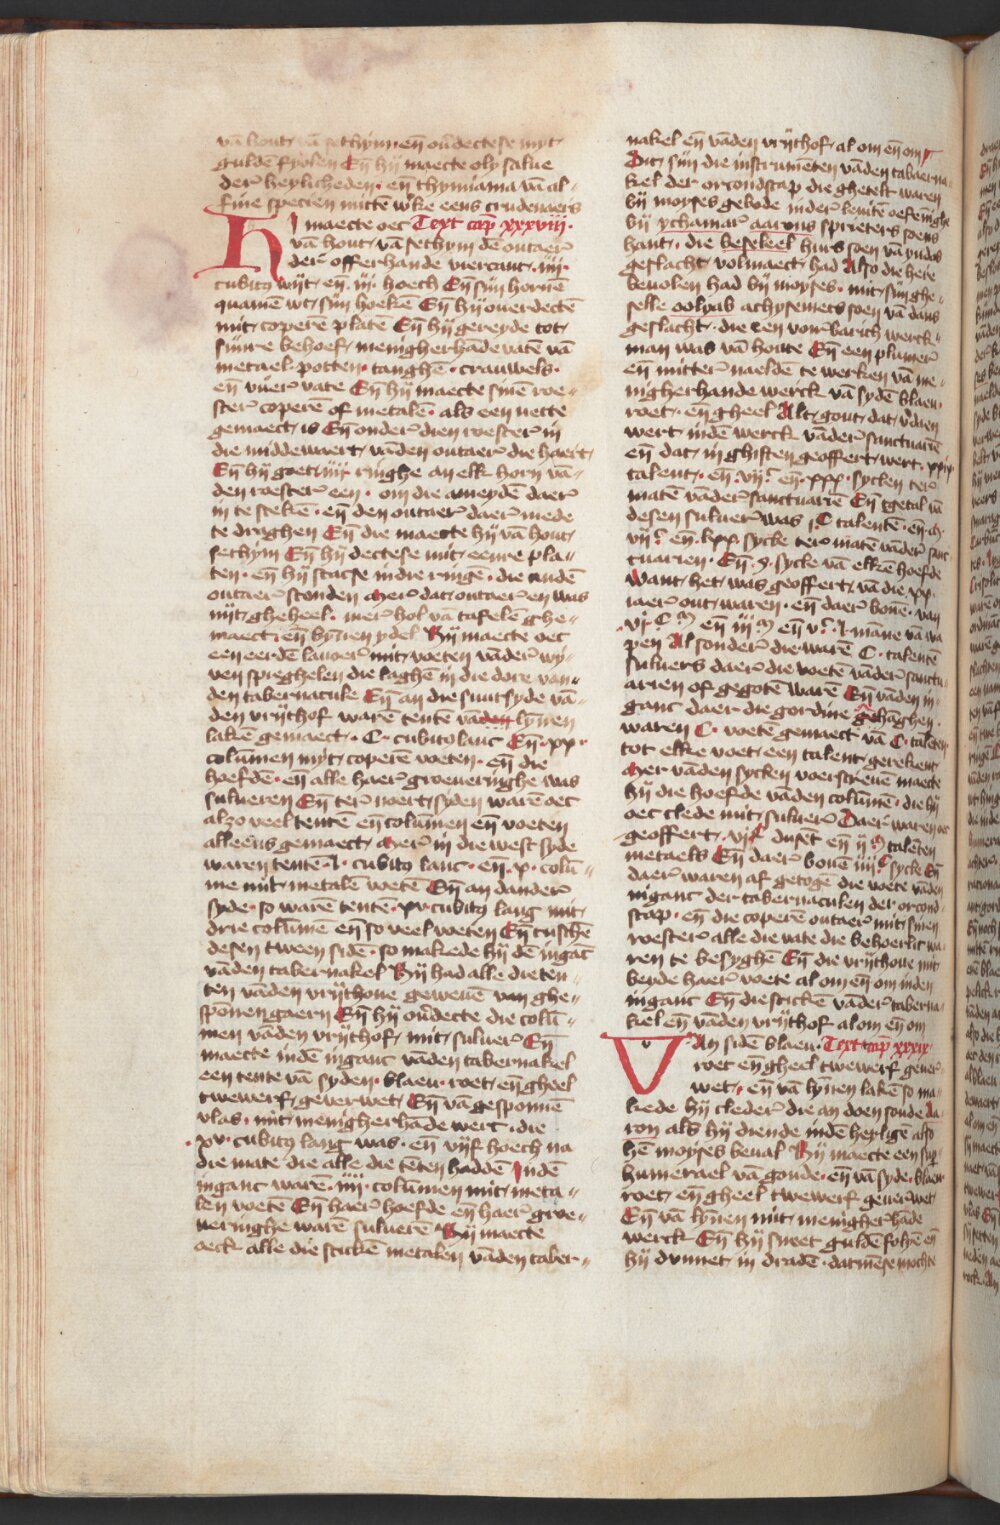 vā hout vā sethijm eñ oūdectese mijt
guldē fyolen Eñ hij maecte oly salue
der heylicheden · eñ thymiama vā al-
fine specien mittē w̄ke eens crudenaers
HI maecte oec Text cap̄ xxxviij·
vā hout vā sethym dē outaer
der offerhande viercant · iiij·
cubitꝫ wijt · eñ · iij · hoech Eñ sijn hornē
quamē wt sijn hoekē Eñ hij ouerdectē
mit coperē platē Eñ hij gereyde tot
sijnre behoef menigherhāde vatē vā
metael · potten · tanghē · crauwels ·
eñ vuer vate Eñ hij maecte sinē roe-
ster coperē of metalē · als een nette
gemaect is Eñ onder dien roester in
die middewaert vāden outaer die haert
Eñ hij goet iiij ringhe an elk horn vā-
den roester een · om die ameydē daer
in te stekē · eñ den outaer daer mede
te draghen Eñ die maecte hij vā hout
sethym Eñ hij dectese mit eenre pla-
ten · eñ hij stacse in die ringē · die anden
outaer stonden Mer dat outaer en was
nijt gheheel · mer hol vā tafelē ghe-
maect eñ bynnen ydel Hij maecte oec
een eerdē lauoer mit voeten vāder wy-
ven spieghelen die laghē in die dore van-
den tabernacule Eñ an die suut syde vā-
den vrijthof warē tente vaden lynen
lakē gemaect · C · cubito lanc Eñ · xx ·
colūmen mijt coperē voeten · eñ die
hoefdē · eñ alle haer groeueringhe was
sulueren Eñ ter noert syden warē oec
alzo veel tentē eñ colūmen eñ voeten
alleēns gemaect Mer in die west syde
waren tentē · l · cubito lanc · eñ · x · colū-
me mit metalē voetē Eñ an dander
syde · so warē tentē · xv cubitꝫ lang mit
drie colūmē eñ so veel voeten Eñ tuschē
desen tween sidē · so makede hij dē ingāc
vāden tabernakel Hij had alle die ten-
ten vāden vrijthoue geweuē van ghe-
sponen gaern Eñ hij oūdecte die colū-
men vāden vrijthof mit suluer Eñ
maecte indē inganc vāden tabernakel
een tente vā syden · blaeu · roet eñ gheel
twewerf geverwet Eñ vā gesponnē
vlas · mit menigherhāde werc · die
· xv · cubitꝫ lang was · eñ vijf hoech na
die mate die alle die tētten haddē Indē
inganc ware · iiij · colūmen mit meta-
len voetē Eñ haer hoefde eñ haer groe-
veringhe warē suluerē Hij maecte
oeck alle die stickē metalen vāden taber-
nakel eñ vāden vrijthof al om eñ om
Dit sijn die instrumēten vāden tabaerna-
kel der orcondscap die ghetelt waren
bij moyses gebode inder leuitē oefenighe
bij ychamar aarons priesters soens
hant · die beseleel hurs soen vā yudas
geslacht volmaect had Also die here
beuolen had bij moyses · mit sijn ghe-
selle oolyab achysemets soen vā dans
geslacht · die een voirbarich werck-
man was vā houte Eñ een plumer
eñ mitter naeldē te werken vā me-
nigherhande werck vā sydē blaeu ·
roet · eñ gheel Alt gout dat v̄dien
wert indē werck vāder sanctuariē
eñ dat in ghiften geoffert wert · xxix
talent · eñ · vij ͨ eñ · xxx · sycken ter
matē vāder sanctuariē Eñ tgetal vā
desen suluer was j C talentē · eñ · M ·
vij ͨ · eñ · lxx · sycke ter matē vāder sanc
tuarien · Eñ · j · sycke vā elkē hoefde
want het was geoffert vā die xx ·
iaer out waren · eñ daer bouē · van
· vj · C m̄ eñ iij m̄ eñ v ͨ · l · māne vā wa
pen Alsonder die warē C · talentē
suluers daer die voetē vāder sanctu-
arien of gegotē warē Eñ vāden in-
ganc daer die gordine gehāghen ·
waren C · voetē gemaect vā C · talētē
tot elke voet een talent gerekent
Mer vāden sycken voerscreuē maecte
hij die hoefde vāden colūmē · die hij
oec clede mit suluer Daer waren oec
geoffert · vij dusēt eñ ij m̄ talētē
metaels Eñ daer bouē iiij ͨ sycke Eñ
daer waren af getogē die voete vāden
niganc der tabernaculen der orcond-
scap · eñ die coperē outaer mit sinen
roester alle die vate die behoerlic wa
ren te besyghē Eñ die vrijthoue mit
beyde haer voete al om eñ om inden
inganc Eñ die stickē vāder taberna-
kel eñ vāden vrijthof al om eñ om
VAn sidē blaeu · Text cap̄ xxxix
roet eñ gheel twewerf gever-
wet · eñ vā lynen lakē so ma-
kede hij cleder die an doen soude Aa
ron als hij diende indē heylige also
hē moyses beual Hij maecte een sup̄
humerael vā goude · eñ vā syde · blaeu
roet eñ gheel twewerf geuerwet
Eñ vā lynen mit menigherhāde
werck Eñ hij sneet guldē folyē eñ
hij dunnet in dradē · datmēse mochte